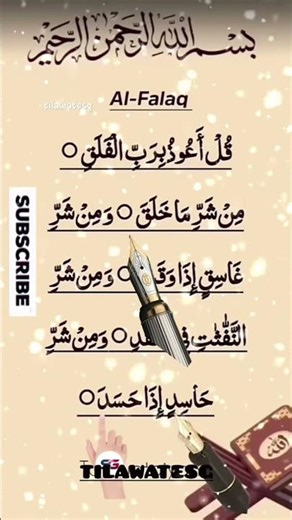 بسم الله الرحمن الرحيم
tilawatesg
Al-Falaq
قُلۡ أَعُوذُ بِرَبِّ الۡفَلَقِ ○
مِنۡ شَرِّ مَا خَلَقَ ○ وَ مِنۡ شَرِّ
غَاسِقٍ إِذَا ○ وَ مِنۡ شَرِّ
النَّفّٰثٰتِ ○ وَ مِنۡ شَرِّ
حَاسِدٍ إِذَا حَسَدَ ○
SUBSCRIBE
TILAWATESG
الله